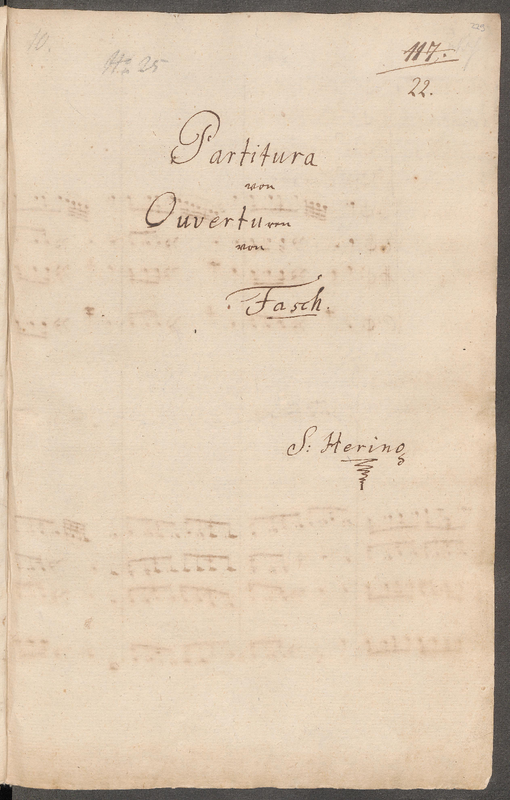 10.
No 25
117.
22.
Partitura
von
Ouverturen
von
Fasch.
S: Herino